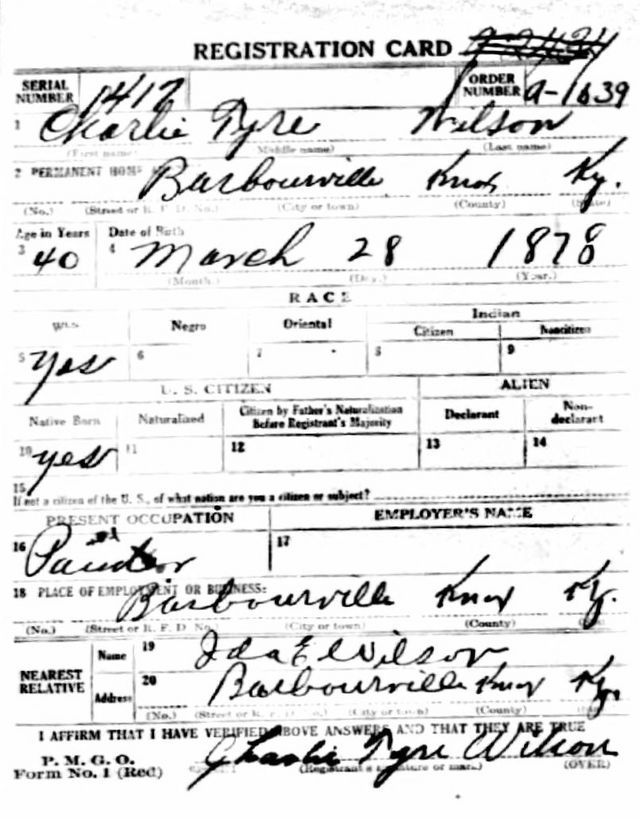 REGISTRATION CARD
SERIAL NUMBER 1417 ORDER NUMBER A-1639
1 Charlie Tyre Wilson
(First name) (Middle name) (Last name)
2 PERMANENT HOME Barbourville Knox Ky.
(No.) (Street or R. F. D. No.) (City or town) (County) (State)
Age in Years Date of Birth
3 40 4 March 28 1878
(Month.) (Day.) (Year.)
RACE
Negro Oriental Indian
Citizen Noncitizen
5 yes 6 7 8 9
U. S. CITIZEN ALIEN
Native Born Naturalized Citizen by Father's Naturalization Before Registrant's Majority Declarant Non-declarant
10 yes 11 12 13 14
15
If not a citizen of the U. S., of what nation are you a citizen or subject?
PRESENT OCCUPATION EMPLOYER'S NAME
16 Painter 17
18 PLACE OF EMPLOYMENT OR BUSINESS:
Barbourville Knox Ky.
(No.) (Street or R. F. D. No.) (City or town) (County) (State)
NEAREST RELATIVE Name 19 Ida E Wilson
Address 20 Barbourville Knox Ky.
(No.) (Street or R. F. D. No.) (City or town) (County) (State)
I AFFIRM THAT I HAVE VERIFIED ABOVE ANSWERS AND THAT THEY ARE TRUE
P. M. G. O.
Form No. 1 (Red) Charlie Tyre Wilson
(Registrant's signature or mark) (OVER)